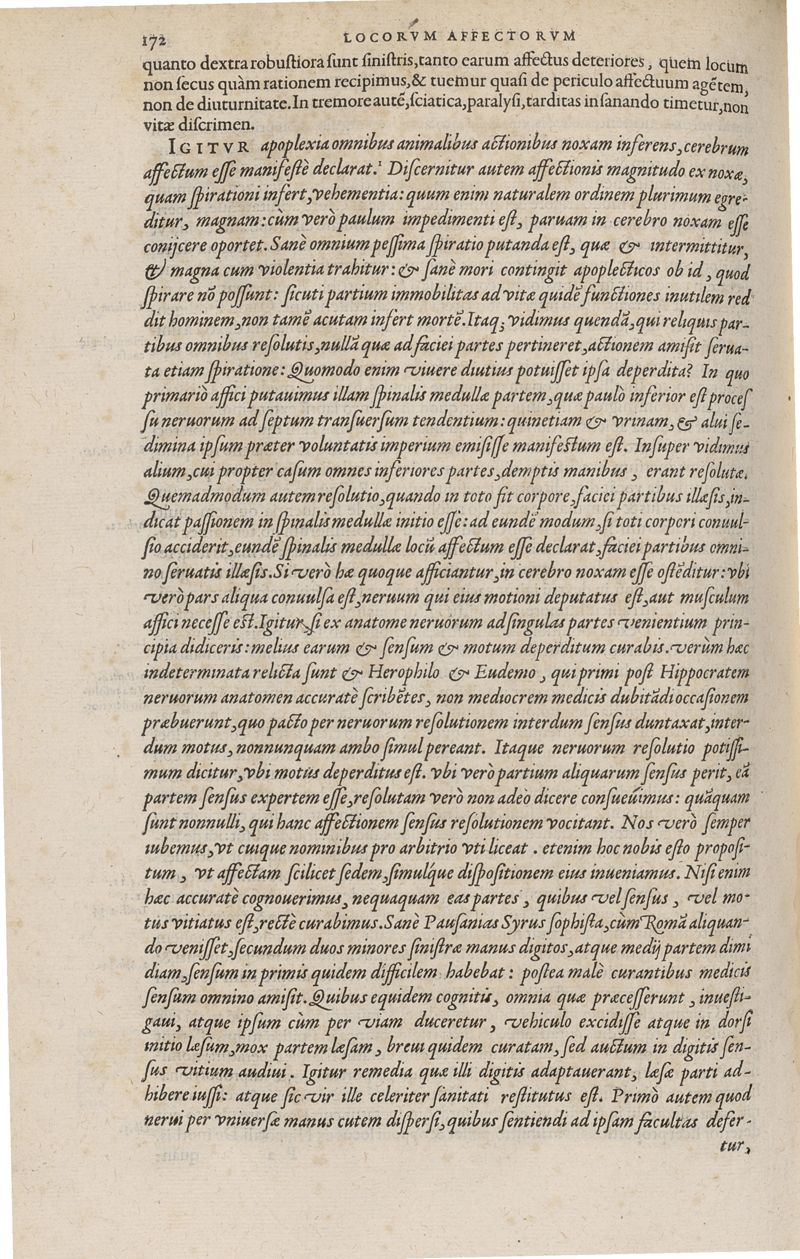 172 LOCORVM AFFECTORVM
quanto dextra robustiora sunt sinistris, tanto earum affectus deteriores, quem locum
non secus quàm rationem recipimus, & tuemur quasi de periculo affectuum agētem,
non de diuturnitate. In tremore autē, sciatica, paralysi, tarditas in sanando timetur, non
vitæ discrimen.
IGITVR apoplexia omnibus animalibus actionibus noxam inferens, cerebrum
affectum esse manifestè declarat. Discernitur autem affectionis magnitudo ex noxæ,
quam spirationi infert, vehementia: quum enim naturalem ordinem plurimum egre-
ditur, magnam: cùm verò paulum impedimenti est, paruam in cerebro noxam esse
conijcere oportet. Sanè omnium pessima spiratio putanda est, quæ & intermittitur,
& magna cum violentia trahitur: & sanè mori contingit apoplecticos ob id, quod
spirare nō possunt: sicuti partium immobilitas ad vitæ quidē functiones inutilem red
dit hominem, non tamē acutam infert mortē. Itaq; vidimus quendā, qui reliquis par-
tibus omnibus resolutis, nullā quæ ad faciei partes pertineret, actionem amisit serua-
ta etiam spiratione: Quomodo enim viuere diutius potuisset ipsa deperdita? In quo
primariò affici putauimus illam spinalis medullæ partem, quæ paulò inferior est proces
su neruorum ad septum transuersum tendentium: quinetiam & vrinam, & alui se-
dimina ipsum præter voluntatis imperium emisisse manifestum est. Insuper vidimus
alium, cui propter casum omnes inferiores partes, demptis manibus, erant resolutæ.
Quemadmodum autem resolutio, quando in toto fit corpore, faciei partibus illæsis, in-
dicat passionem in spinalis medullæ initio esse: ad eundē modum, si toti corpori conuul-
sio acciderit, eundē spinalis medullæ locū affectum esse declarat, faciei partibus omni-
no seruatis illæsis. Si verò hæ quoque afficiantur, in cerebro noxam esse ostēditur: vbi
verò pars aliqua conuulsa est, neruum qui eius motioni deputatus est, aut musculum
affici necesse est. Igitur, si ex anatome neruorum ad singulas partes venientium prin-
cipia didiceris: melius earum & sensum & motum deperditum curabis. verùm hæc
indeterminata relicta sunt & Herophilo & Eudemo, qui primi post Hippocratem
neruorum anatomen accuratè scribētes, non mediocrem medicis dubitādi occasionem
præbuerunt, quo pacto per neruorum resolutionem interdum sensus duntaxat, inter-
dum motus, nonnunquam ambo simul pereant. Itaque neruorum resolutio potissi-
mum dicitur, vbi motus deperditus est. vbi verò partium aliquarum sensus perit, eā
partem sensus expertem esse, resolutam verò non adeò dicere consueuimus: quāquam
sunt nonnulli, qui hanc affectionem sensus resolutionem vocitant. Nos verò semper
iubemus, vt cuique nominibus pro arbitrio vti liceat. etenim hoc nobis esto proposi-
tum, vt affectam scilicet sedem, simulque dispositionem eius inueniamus. Nisi enim
hæc accuratè cognouerimus, nequaquam eas partes, quibus vel sensus, vel mo-
tus vitiatus est, rectè curabimus. Sanè Pausanias Syrus sophista, cùm Romā aliquan-
do venisset, secundum duos minores sinistræ manus digitos, atque medij partem dimi
diam, sensum in primis quidem difficilem habebat: postea malè curantibus medicis
sensum omnino amisit. Quibus equidem cognitis, omnia quæ præcesserunt, inuesti-
gaui, atque ipsum cùm per viam duceretur, vehiculo excidisse atque in dorsi
initio læsum, mox partem læsam, breui quidem curatam, sed auctum in digitis sen-
sus vitium audiui. Igitur remedia quæ illi digitis adaptauerant, læsæ parti ad-
hibere iussi: atque sic vir ille celeriter sanitati restitutus est. Primò autem quod
nerui per vniuersæ manus cutem dispersi, quibus sentiendi ad ipsam facultas defer-
tur,